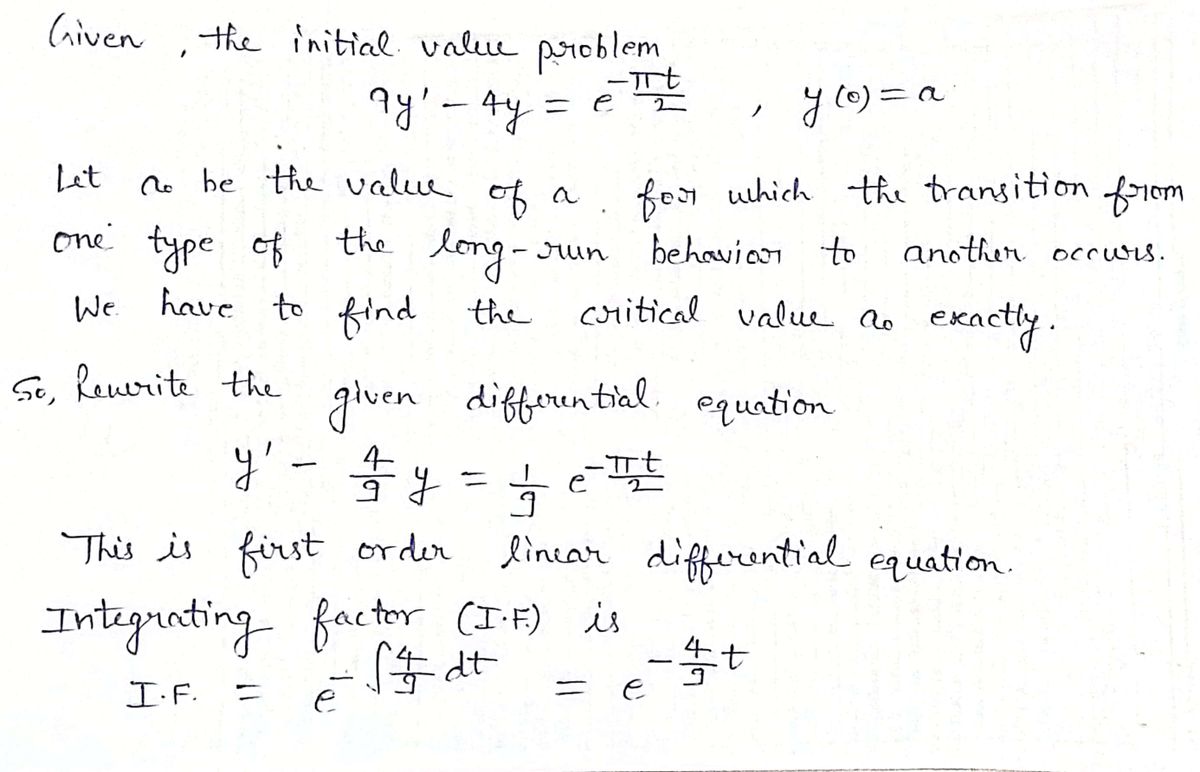 Given, the initial value problem
9y' - 4y = e^{-πt/2} , y(0) = a
Let a₀ be the value of a for which the transition from
one type of the long-run behavior to another occurs.
We have to find the critical value a₀ exactly.
So, Rewrite the given differential equation
y' - 4/9 y = 1/9 e^{-πt/2}
This is first order linear differential equation.
Integrating factor (I.F.) is
I.F. = e^{-∫4/9 dt} = e^{-4/9 t}